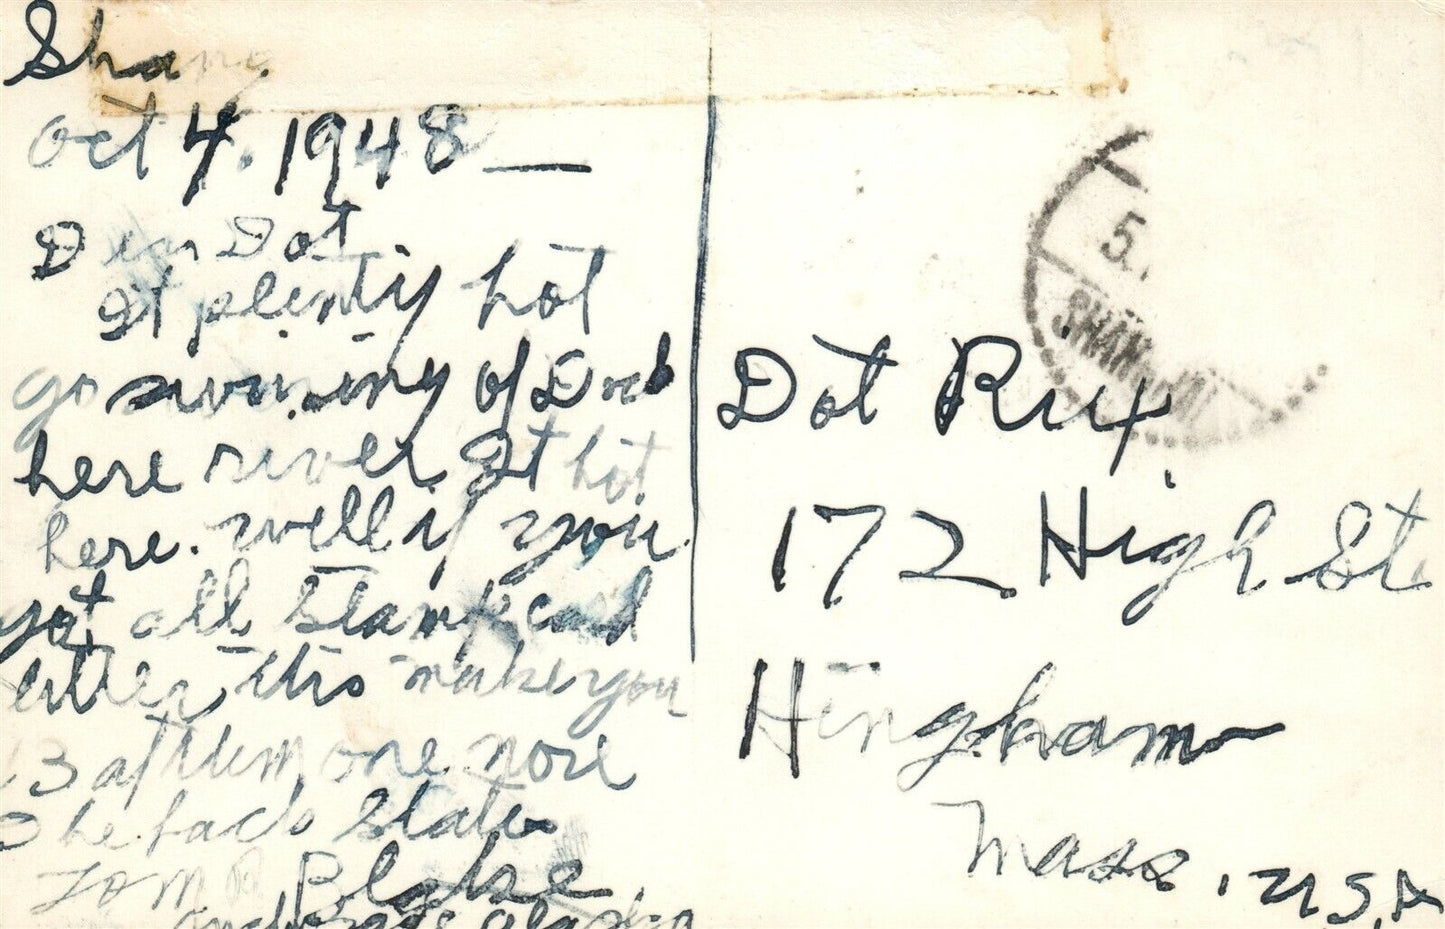 Shang
Oct 4. 1948 —
Dear Dot
It plenty hot
go swiming of Dock
here river It hot
here. well if you
got all stamp card
letter, this makes you
13 of them one more
She back States
Tom R. Blake.
anchorage alaska
5.
SHANGHAI
Dot Rux,
172 High St.
Hingham
Mass. U.S.A